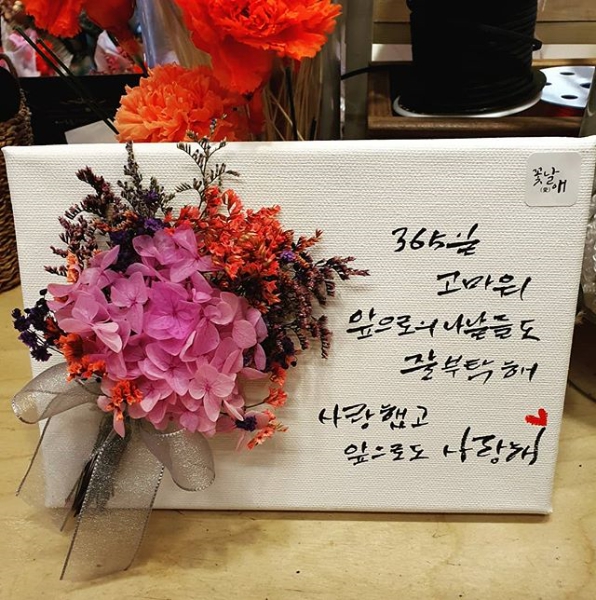 꽃날
(愛)애
365일
고마워
앞으로의 나날들도
잘 부탁해
사랑했고
앞으로도 사랑해